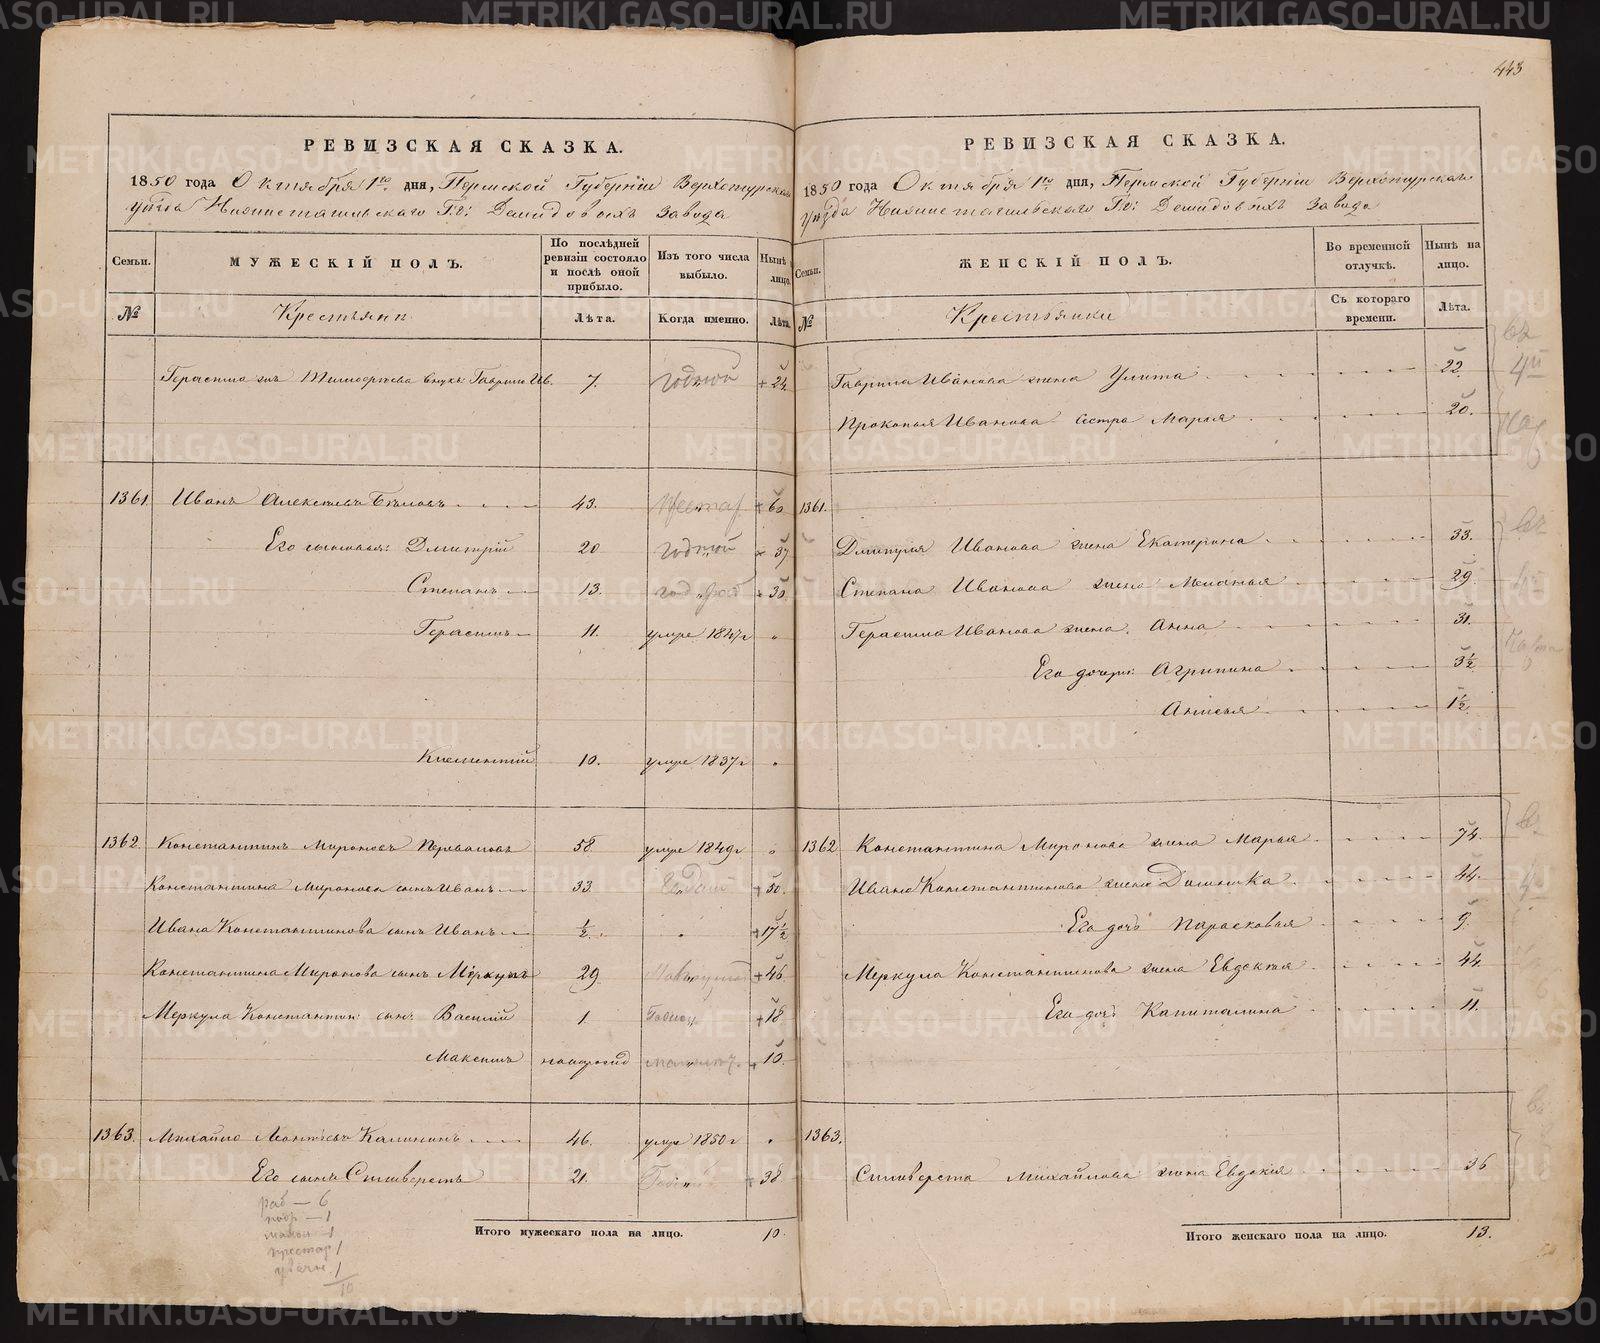 443
РЕВИЗСКАЯ СКАЗКА.
1850 года Октября 1го дня, Пермской Губерніи Верхотурскаго
уѣзда Нижнетагильскаго Гг: Демидовыхъ Завода
Семьи. МУЖЕСКІЙ ПОЛЪ. По послѣдней ревизіи состояло и послѣ оной прибыло. Изъ того числа выбыло. Нынѣ на лицо.
№ Крестьяне Лѣта. Когда именно. Лѣта.
Герасима Тимофеева внукъ Гаврило Ив. 7. годной + 24.
1361. Иванъ Алексѣевъ Бѣловъ 43. престар + 60
Его сыновья: Дмитрій 20 годной 37
Степанъ 13. годной 30.
Герасимъ 11. умре 1847г „
Клементій 10. умре 1837г „
1362. Константинъ Мироновъ Переваловъ 58 умре 1849г „
Константина Миронова сынъ Иванъ 33. Годной + 50.
Ивана Константинова сынъ Иванъ ½. „ + 17½
Константина Миронова сынъ Меркулъ 29 + 46.
Меркула Константин: сынъ Василій 1. Годной + 18.
Максимъ новорожд малолет. + 10.
1363. Михайло Леонтьевъ Калининъ 46. умре 1850г „
Его сынъ Сильверстъ 21. Годной 38
раб — 6
подр — 1
малол — 1
престар 1
увечн. 1
10
Итого мужескаго пола на лицо. 10.
РЕВИЗСКАЯ СКАЗКА.
1850 года Октября 1го дня, Пермской Губерніи Верхотурскаго
уѣзда Нижнетагильскаго Гг: Демидовыхъ Завода
Семьи. ЖЕНСКІЙ ПОЛЪ. Во временной отлучкѣ. Нынѣ на лицо.
№ Крестьянки Съ котораго времени. Лѣта.
Гаврила Иванова жена Улита 22.
Прокопья Иванова сестра Марья 20.
1361.
Дмитрія Иванова жена Екатерина 33.
Степана Иванова жена Меланья 29.
Герасима Иванова жена Анна 31.
Его дочери: Агрипина 3½
Анисья 1½.
1362. Константина Миронова жена Марья 74.
Ивана Константинова жена Домника 44.
Его дочь Парасковья 9.
Меркула Константинова жена Евдокья 44.
Его дочь Капиталина 11.
1363.
Сильверста Михайлова жена Евдокія 36
Итого женскаго пола на лицо. 13.
METRIKI.GASO-URAL.RU